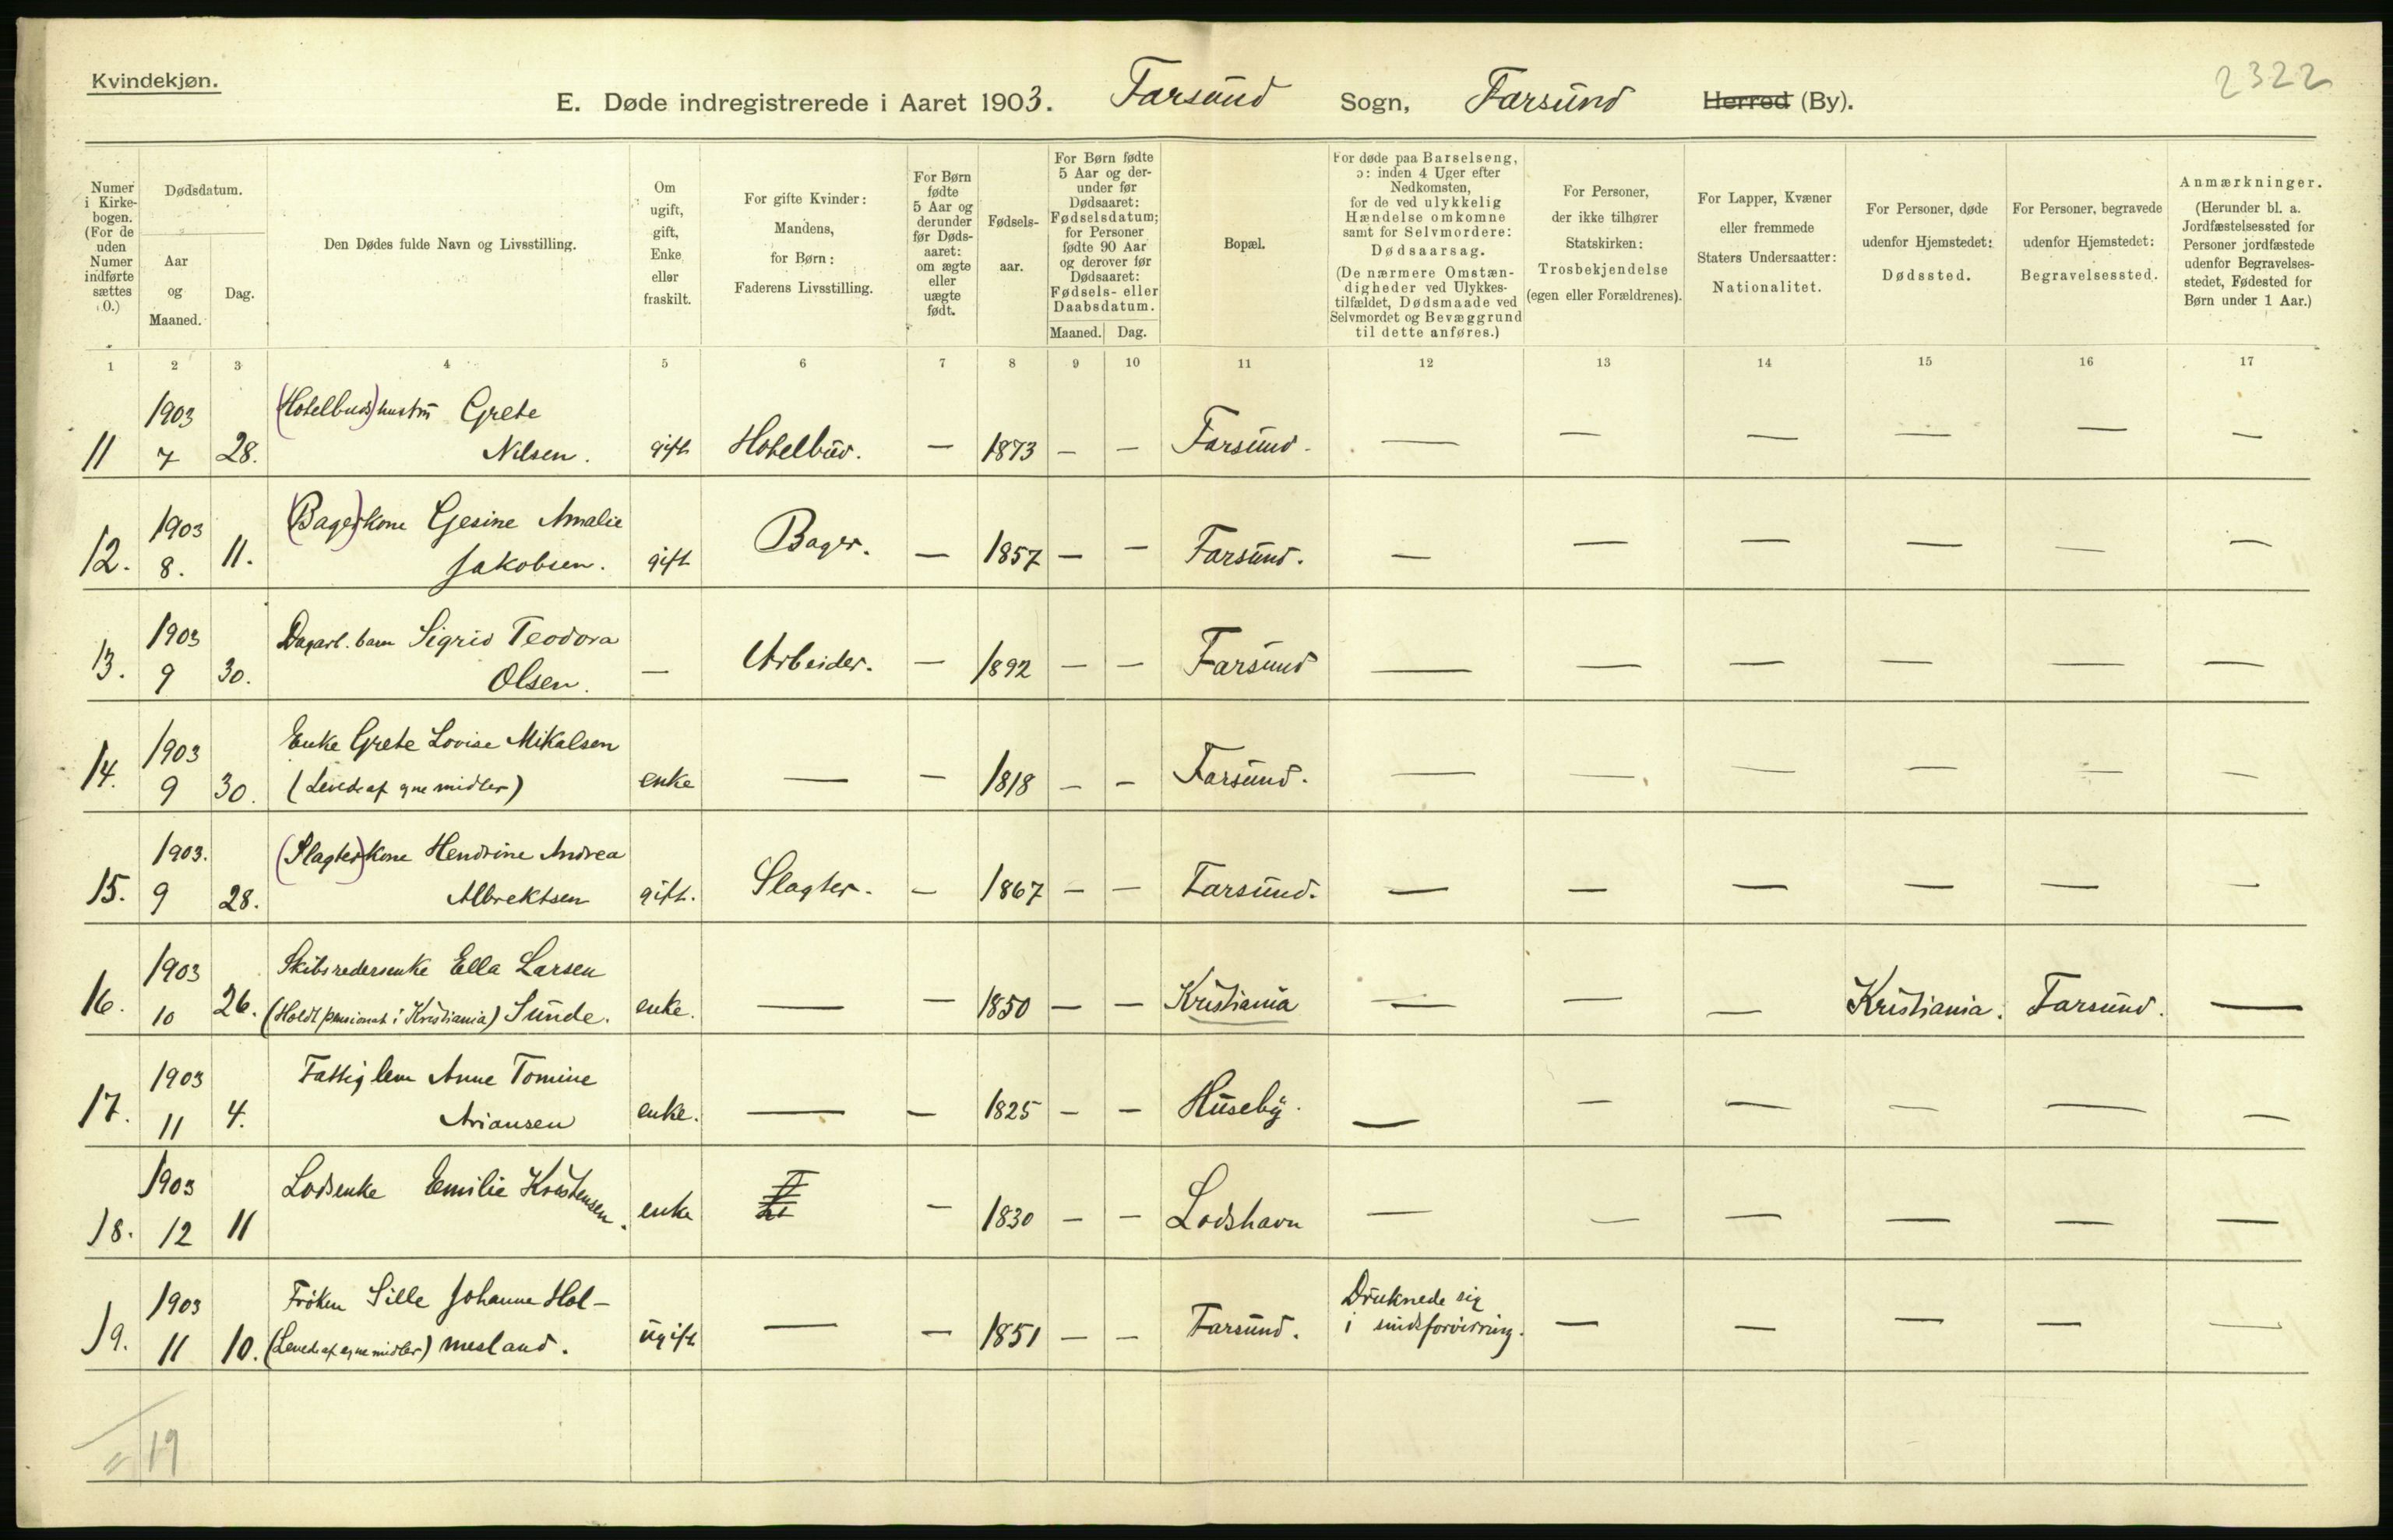 Kvindekjøn.
2322
E. Døde indregistrerede i Aaret 1903. Farsund Sogn, Farsund Herred (By).
Numer i Kirke-bogen. (For de uden Numer indførte sættes 0.)
Dødsdatum.
Aar og Maaned.
Dag.
Den Dødes fulde Navn og Livsstilling.
Om ugift, gift, Enke eller fraskilt.
For gifte Kvinder: Mandens, for Børn: Faderens Livsstilling.
For Børn fødte 5 Aar og derunder før Døds-aaret: om ægte eller uægte født.
Fødsels-aar.
For Børn fødte 5 Aar og der-under før Dødsaaret: Fødselsdatum; for Personer fødte 90 Aar og derover før Dødsaaret: Fødsels- eller Daabsdatum.
Maaned. Dag.
Bopæl.
For døde paa Barselseng, ɔ: inden 4 Uger efter Nedkomsten, for de ved ulykkelig Hændelse omkomne samt for Selvmordere: Dødsaarsag. (De nærmere Omstæn-digheder ved Ulykkes-tilfældet, Dødsmaade ved Selvmordet og Bevæggrund til dette anføres.)
For Personer, der ikke tilhører Statskirken: Trosbekjendelse (egen eller Forældrenes).
For Lapper, Kvæner eller fremmede Staters Undersaatter: Nationalitet.
For Personer, døde udenfor Hjemstedet: Dødssted.
For Personer, begravede udenfor Hjemstedet: Begravelsessted.
Anmærkninger. (Herunder bl. a. Jordfæstelsessted for Personer jordfæstede udenfor Begravelses-stedet, Fødested for Børn under 1 Aar.)
1 2 3 4 5 6 7 8 9 10 11 12 13 14 15 16 17
1903 (Hotelbuds) hustru Grete
11 7 28. Nilsen. gift Hotelbud. — 1873 — — Farsund. — — — — — —
1903 (Bager) kone Gesine Amalie
12. 8. 11. Jakobsen. gift Bager. — 1857 — — Farsund. — — — — — —
1903 Dagarb. barn Sigrid Teodora
13. 9 30. Olsen. — Arbeider. — 1892 — — Farsund — — — — — —
1903 Enke Grete Lovise Mikalsen
14. 9 30. (Levede af egne midler) enke — — 1818 — — Farsund. — — — — — —
1903. (Slagter) kone Hendrine Andrea
15. 9 28. Albrektsen gift. Slagter. — 1867 — — Farsund. — — — — — —
1903 Skibsredersenke Ella Larsen
16. 10 26. (Holdt pensionat i Kristiania) Sunde. enke. — — 1850 — — Kristiania — — — Kristiania. Farsund. —
1903 Fattiglem Anne Tomine
17. 11 4. Ariansen enke. — — 1825 — — Huseby. — — — — — —
1903 Lodsenke Emilie Kristensen.
18. 12 11 enke — 1830 — — Lodshavn — — — — — —
1903 Frøken Sille Johanne Hol-
19. 11 10. (Levede af egne midler) mesland. ugift — — 1851 — — Farsund. Druknede sig
i sindsforvirring. — — — — —
= 19